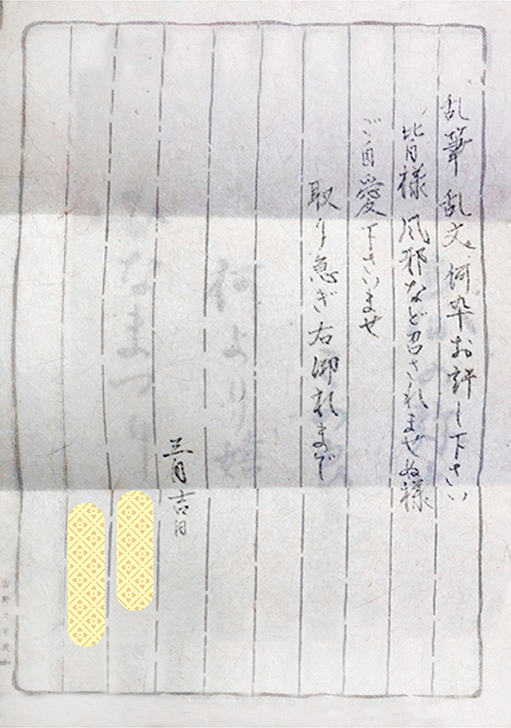 乱筆乱文、何卒お許し下さい
皆様風邪など召されませぬ様
ご自愛下さいませ
取り急ぎ右御礼まで
三月吉日